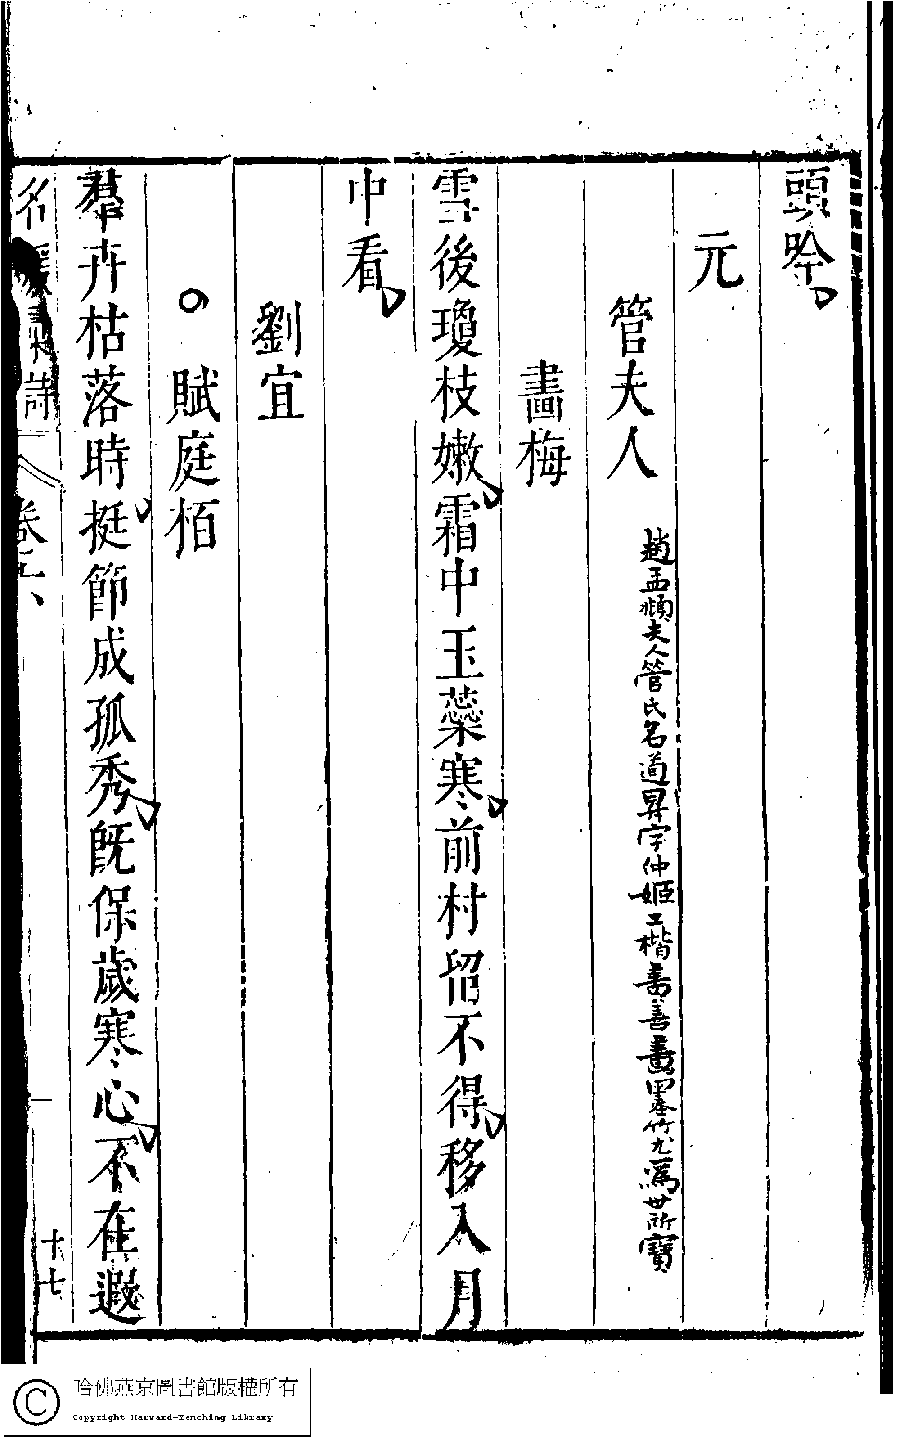 頭吟
元
管夫人 趙孟頫夫人管氏名道昇字仲姬工楷書善畫墨竹尤爲世所寶
畫梅
雪後瓊枝嫩霜中玉蘂寒前村留不得移入月
中看
劉宜
○賦庭栢
羣卉枯落時挺節成孤秀旣保歲寒心不在遐
名媛彙詩 卷之六 十七
哈佛燕京圖書館版權所有
Copyright Harvard-Yenching Library